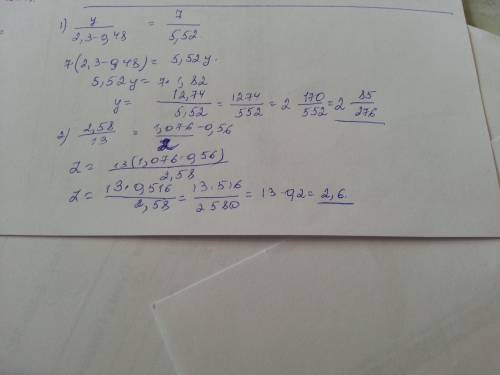 1) y / 2,3-0,48 = 7 / 5,52
7(2,3-0,48) = 5,52y.
5,52y = 7·1,82
y = 12,74 / 5,52 = 1274 / 552 = 2 170/552 = 2 85/276
2) 2,58 / 13 = 1,076-0,56 / z
z = 13(1,076-0,56) / 2,58
z = 13·0,516 / 2,58 = 13·516 / 2580 = 13·0,2 = 2,6.